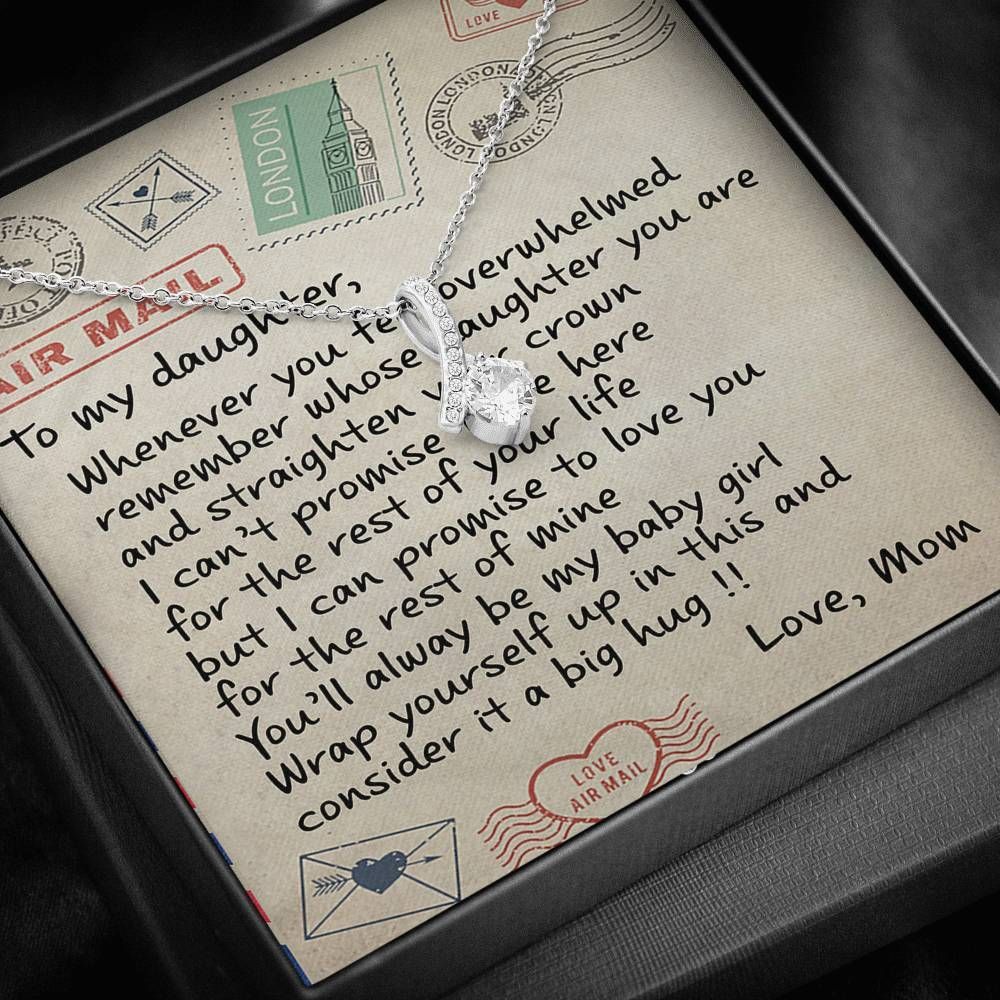 LOVE
LONDON
LONDON LONDON LONDON
AIR MAIL
To my daughter,
Whenever you feel overwhelmed
remember whose daughter you are
and straighten your crown
I can't promise here
for the rest of your life
but I can promise to love you
for the rest of mine
You'll alway be my baby girl
Wrap yourself up in this and
consider it a big hug !!
Love, Mom
LOVE
AIR MAIL